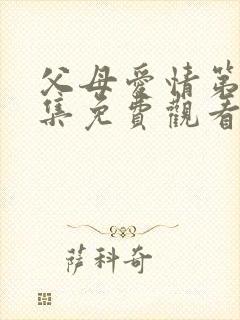 父母愛情第
集免費觀看
萨科奇